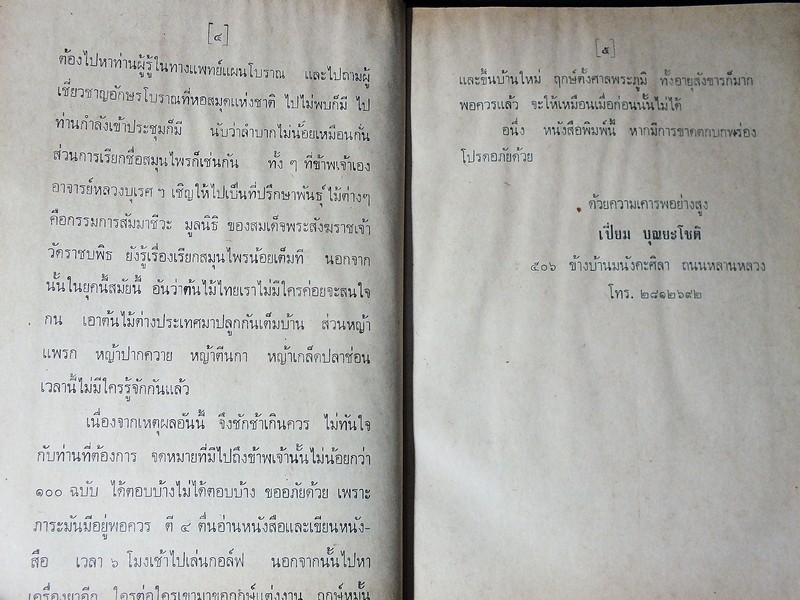 [๔]
ต้องไปหาท่านผู้รู้ในทางแพทย์แผนโบราณ และไปถามผู้
เชี่ยวชาญอักษรโบราณที่หอสมุดแห่งชาติ ไปไม่พบก็มี ไป
ท่านกำลังเข้าประชุมก็มี นับว่าลำบากไม่น้อยเหมือนกัน
ส่วนการเรียกชื่อสมุนไพรก็เช่นกัน ทั้ง ๆ ที่ข้าพเจ้าเอง
อาจารย์หลวงบุเรศ ฯ เชิญให้ไปเป็นที่ปรึกษาพันธุ์ไม้ต่างๆ
คือกรรมการสัมมาชีวะ มูลนิธิ ของสมเด็จพระสังฆราชเจ้า
วัดราชบพิธ ยังรู้เรื่องเรียกสมุนไพรน้อยเต็มที นอกจาก
นั้นในยุคนี้สมัยนี้ อันว่าต้นไม้ไทยเราไม่มีใครค่อยจะสนใจ
กน เอาต้นไม้ต่างประเทศมาปลูกกันเต็มบ้าน ส่วนหญ้า
แพรก หญ้าปากควาย หญ้าตีนกา หญ้าเกล็ดปลาช่อน
เวลานี้ไม่มีใครรู้จักกันแล้ว
เนื่องจากเหตุผลอันนี้ จึงชักช้าเกินควร ไม่ทันใจ
กับท่านที่ต้องการ จดหมายที่มีไปถึงข้าพเจ้านั้นไม่น้อยกว่า
๑๐๐ ฉบับ ได้ตอบบ้างไม่ได้ตอบบ้าง ขออภัยด้วย เพราะ
ภาระมันมีอยู่พอควร ตี ๔ ตื่นอ่านหนังสือและเขียนหนัง-
สือ เวลา ๖ โมงเช้าไปเล่นกอล์ฟ นอกจากนั้นไปหา
เครื่องยาอีก ใครต่อใครเขามาขอฤกษ์แต่งงาน ฤกษ์หมั้น
[๕]
และขึ้นบ้านใหม่ ฤกษ์ตั้งศาลพระภูมิ ทั้งอายุสังขารก็มาก
พอควรแล้ว จะให้เหมือนเมื่อก่อนนั้นไม่ได้
อนึ่ง หนังสือพิมพ์นี้ หากมีการขาดตกบกพร่อง
โปรดอภัยด้วย
ด้วยความเคารพอย่างสูง
เปี่ยม บุณยะโชติ
๕๐๖ ข้างบ้านมนังคะศิลา ถนนหลานหลวง
โทร. ๒๘๑๒๖๙๒